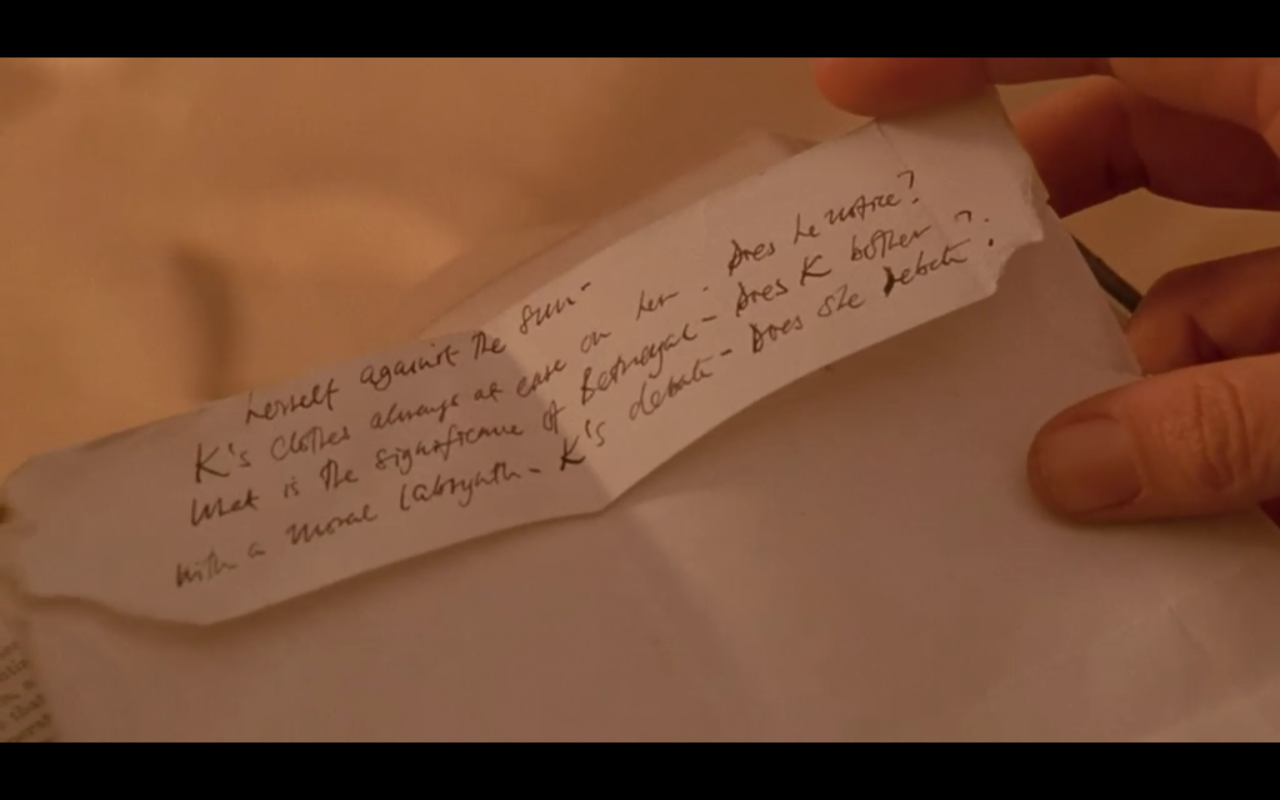 herself against the sun-
K's clothes always at ease on her. Does he notice?
What is the significance of Betrayal - Does K bother ?
with a moral labrynth - K's debate - Does she debate ?